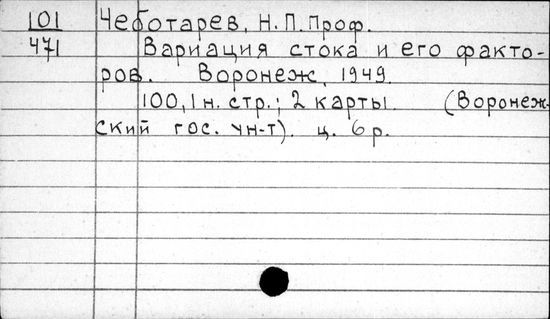 101 Чеботарев, Н.П. Проф.
471 Вариация стока и его факто-
ров. Воронеж, 1949.
100,1 н. стр.; 2 карты. (Воронеж-
ский гос. ун-т). ц. 6 р.